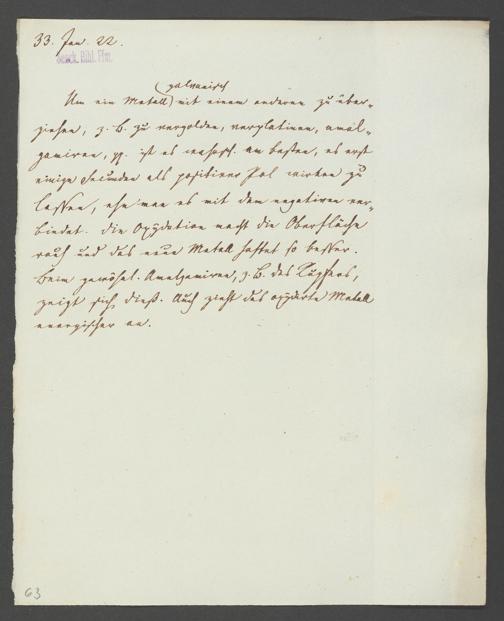 33. Jan. 22.
Senck. Bibl. Ffm.
galvanisch
Um ein Metall mit einem anderen zu über-
ziehen, z. B. zu vergolden, verplatinen, amal-
gamiren, pp. ist es am besten, es erst
einige Secunden als positiven Pol wirken zu
lassen, ehe man es mit dem negativen ver-
bindet. Die Oxydation macht die Oberfläche
rauh und das neue Metall haftet so besser.
Beim gewöhnl. Amalgamiren, z. B. des Kupfers,
zeigt sich dieß. Auch zieht das oxydirte Metall
energischer an.
63